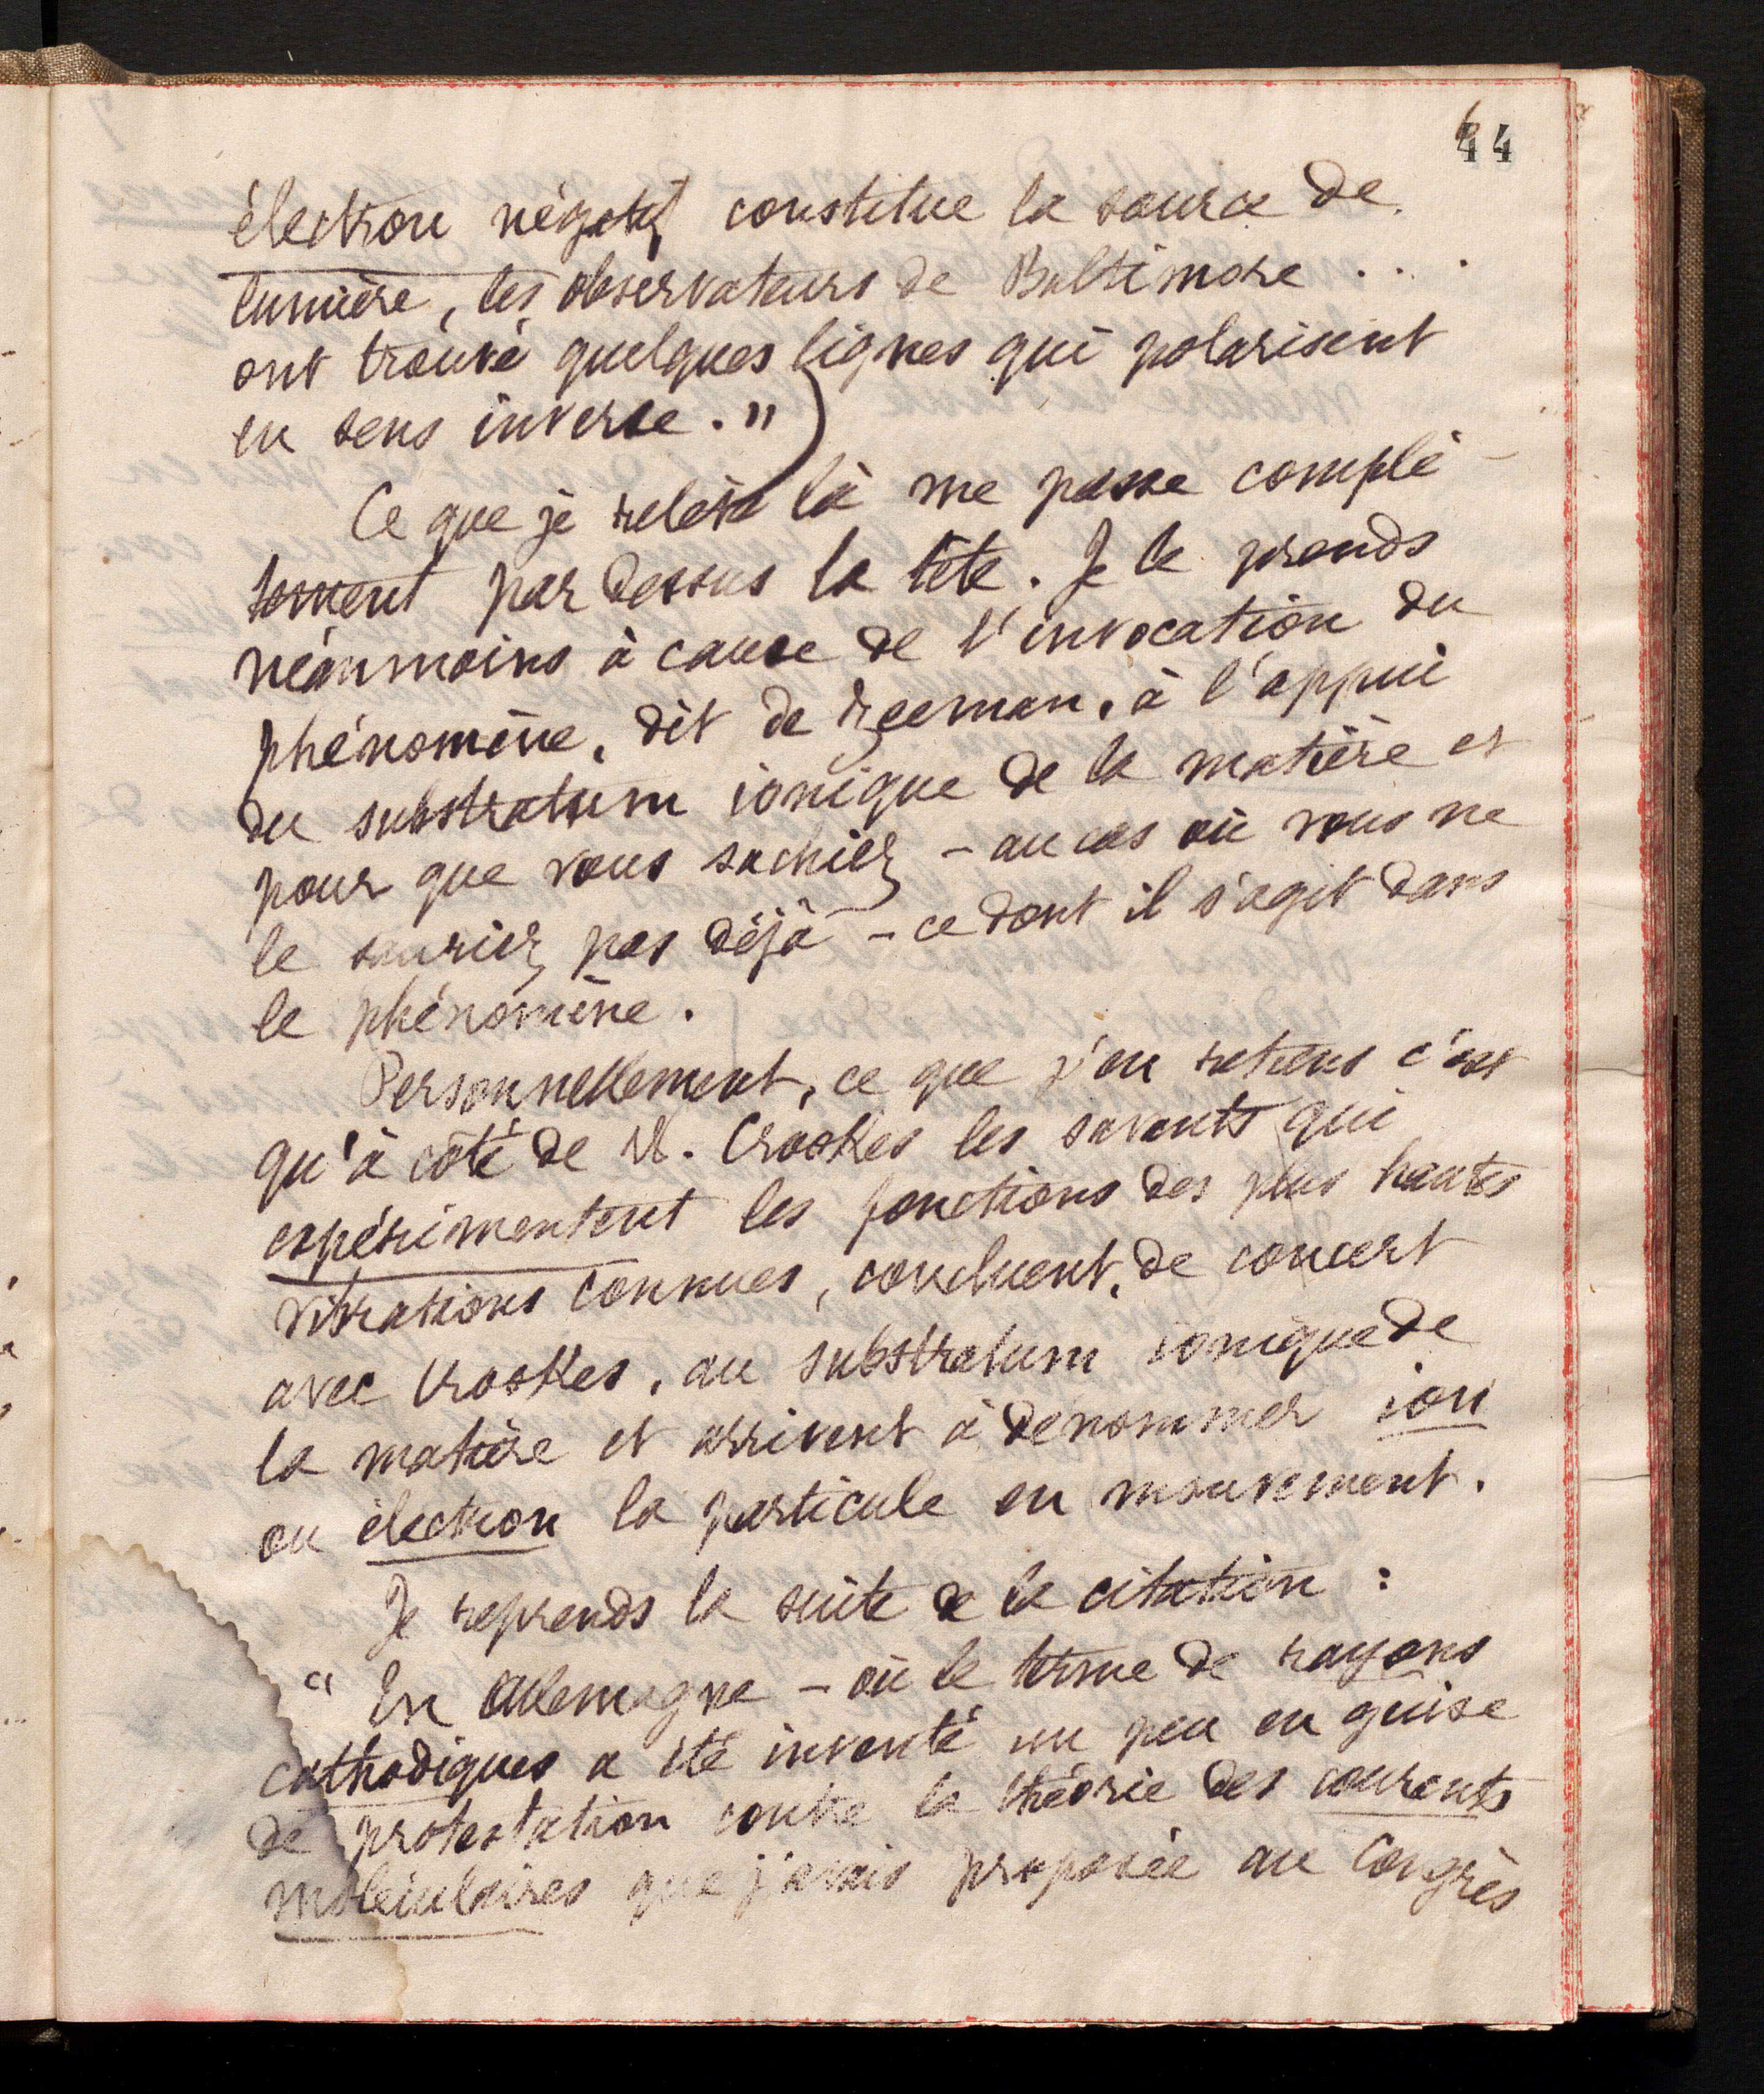 44
6
électron négatif constitue la source de
lumière, les observateurs de Baltimore . . .
ont trouvé quelques lignes qui polarisent
en sens inverse."
Ce que je relève là me passe complè-
tement par dessus la tête. Je le prends
néanmoins à cause de l'invocation du
phénomène, dit de Zeeman, à l'appui
du substratum ionique de la matière et
pour que vous sachiez - au cas où vous ne
le sauriez pas déjà - ce dont il s'agit dans
le phénomène.
Personnellement, ce que j'en retiens c'est
qu'à côté de M. Crookes les savants qui
expérimentent les fonctions des plus hautes
vibrations connues, concluent, de concert
avec Crookes, au substratum ionique de
la matière et arrivent à dénommer ion
ou électron la particule en mouvement.
Je reprends la suite de la citation :
" En Allemagne - où le terme de rayons
cathodiques a été inventé un peu en guise
de protestation contre la théorie des courants
moléculaires que j'avais proposée au Congrès